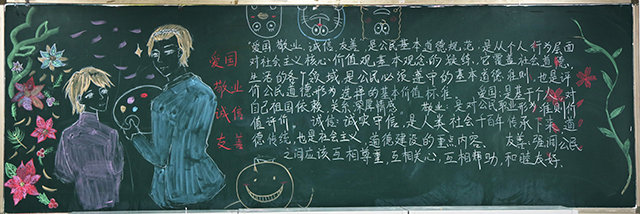 爱国
敬业
诚信
友善
“爱国、敬业、诚信、友善”是公民基本道德规范，是从个人行为层面
对社会主义核心价值观基本观念的凝练。它覆盖社会道德
生活的各个领域，是公民必须遵守的基本道德准则，也是评
价公民道德行为选择的基本价值标准。 爱国：是基于个人对
自己祖国依赖关系深厚情感。 敬业：是对公民职业行为准则价
值评价。 诚信：诚实守信，是人类社会千百年传承下来道
德传统，也是社会主义道德建设的重点内容。 友善：强调公民
之间应该互相尊重、互相关心、互相帮助，和睦友好。